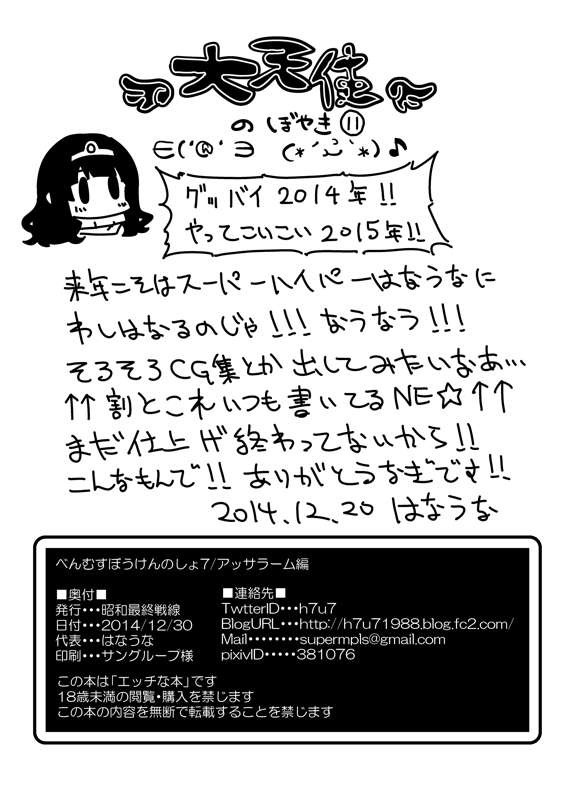 大天使
のぼやき⑪
グッバイ2014年!!
やってこいこい2015年!!
来年こそはスーパーハイパーはなうなに
わしはなるのじゃ!!!なうなう!!!
そろそろCG集とか出してみたいなあ…
↑↑割とこれいつも書いてるNE☆↑↑
まだ仕上げ終わってないから!!
こんなもんで!!ありがとうなぎです!!
2014.12.20 はなうな
べんむすぼうけんのしょ7/アッサラーム編
■奥付■
発行・・・昭和最終戦線
日付・・・2014/12/30
代表・・・はなうな
印刷・・・サングループ様
■連絡先■
TwtterID・・・h7u7
BlogURL・・・http://h7u71988.blog.fc2.com/
Mail・・・・・・・・supermpls@gmail.com
pixivID・・・・・381076
この本は「エッチな本」です
18歳未満の閲覧・購入を禁じます
この本の内容を無断で転載することを禁じます